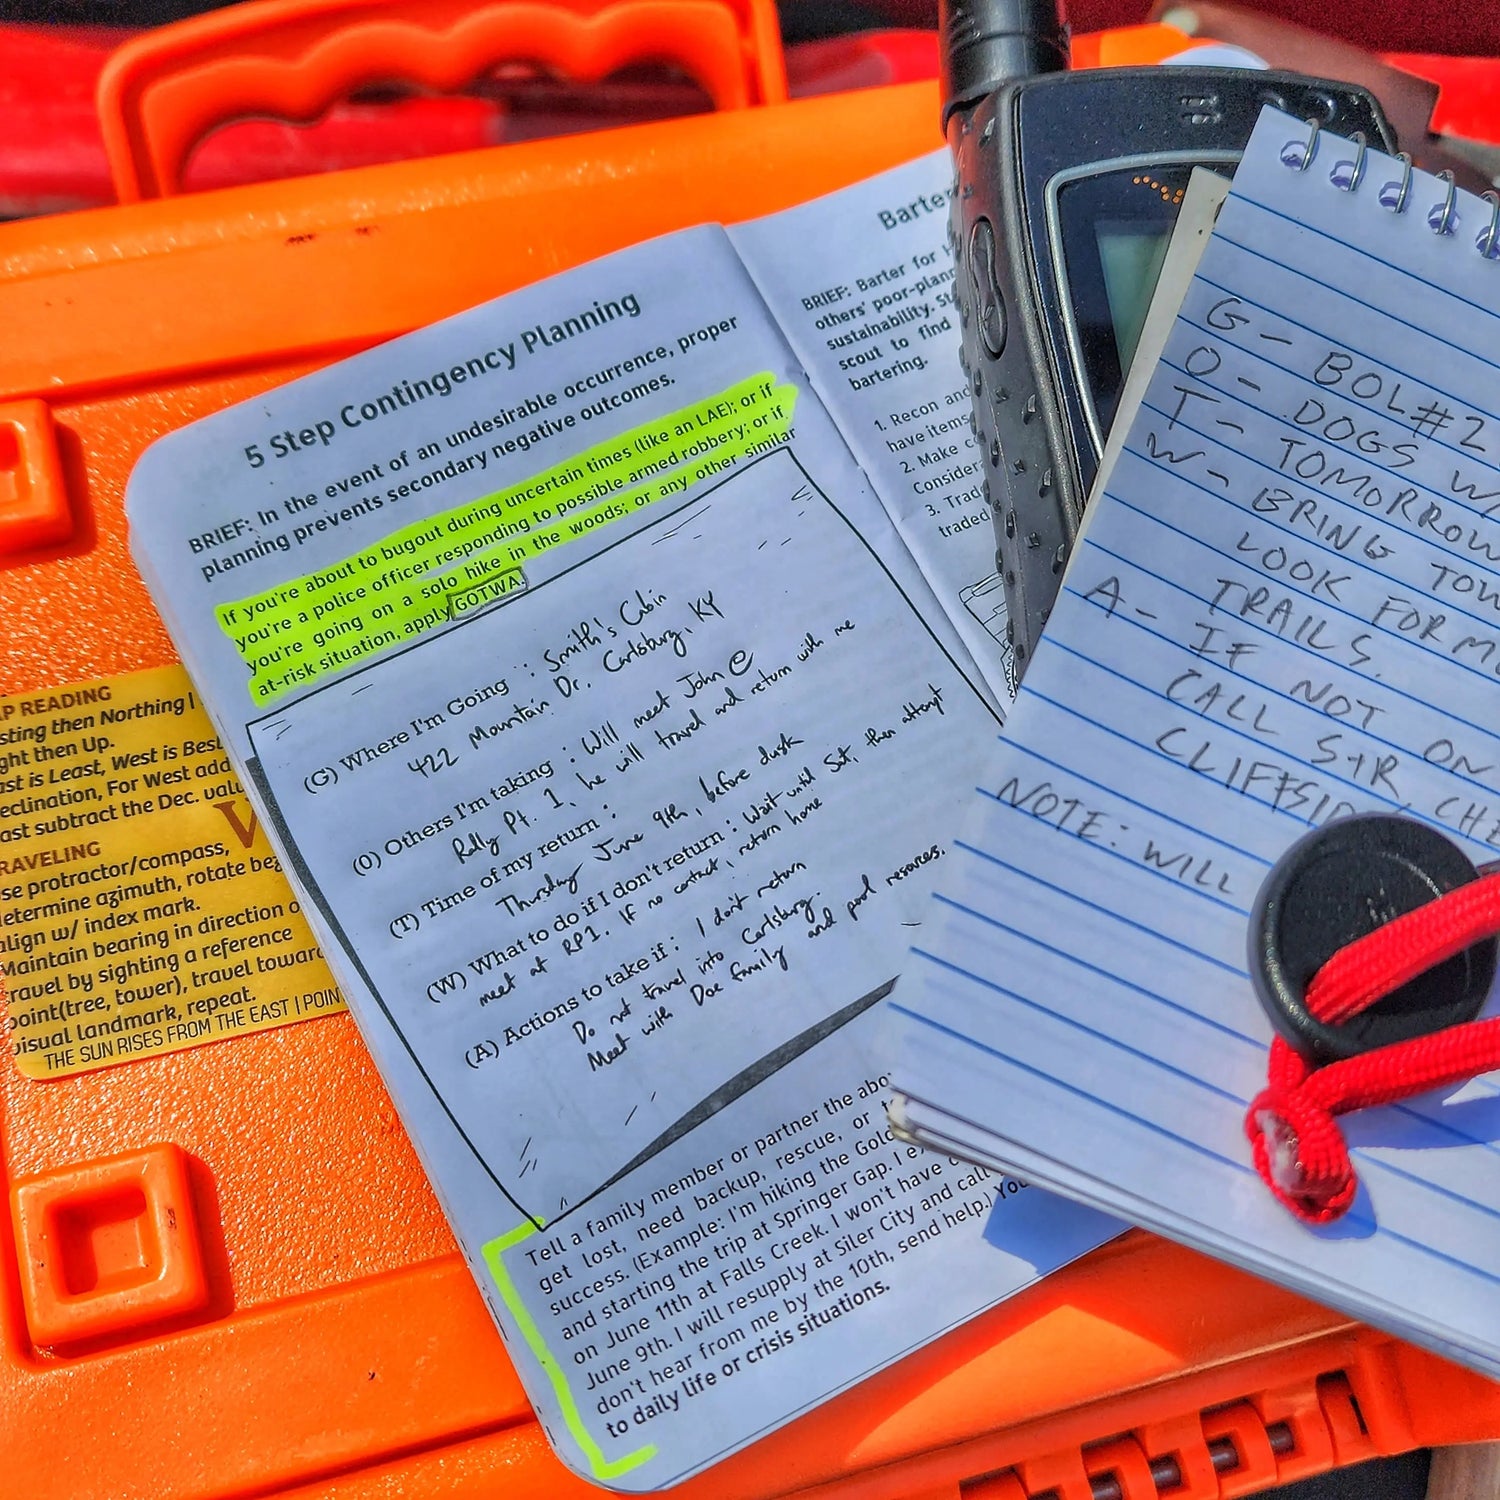 5 Step Contingency Planning
BRIEF: In the event of an undesirable occurrence, proper
planning prevents secondary negative outcomes.
If you're about to bugout during uncertain times (like an LAE); or if
you're a police officer responding to possible armed robbery; or if
you're going on a solo hike in the woods; or any other similar
at-risk situation, apply GOTWA.
(G) Where I'm Going : Smith's Cabin
422 Mountain Dr. Carlsburg, KY
(O) Others I'm taking : Will meet John @
Rally Pt. 1, he will travel and return with me
(T) Time of my return :
Thursday June 9th, before dusk
(W) What to do if I don't return : Wait until Sat, then attempt
meet at RP1. If no contact, return home
(A) Actions to take if : I don't return
Do not travel into Carlsburg.
Meet with Doe family and pool resources.
Tell a family member or partner the abo
get lost, need backup, rescue, or
success. (Example: I'm hiking the Gol
and starting the trip at Springer Gap. I
on June 11th at Falls Creek. I won't have
June 9th. I will resupply at Siler City and call
don't hear from me by the 10th, send help.) You
to daily life or crisis situations.
Barte
BRIEF: Barter for
others' poor-plan
sustainability.
scout to find
bartering.
1. Recon and
have items
2. Make
Consider
3. Trad
traded
G - BOL#2
O - DOGS W/
T - TOMORROW
W - BRING TOW
LOOK FOR M
TRAILS.
A - IF NOT ON
CALL S+R, CHE
CLIFFSID
NOTE: WILL
P READING
sting then Northing |
ght then Up.
ast is Least, West is Best
eclination, For West add
ast subtract the Dec. valu
RAVELING
se protractor/compass,
etermine azimuth, rotate bez
align w/ index mark.
Maintain bearing in direction o
ravel by sighting a reference
point(tree, tower), travel towar
visual landmark, repeat.
THE SUN RISES FROM THE EAST | POIN